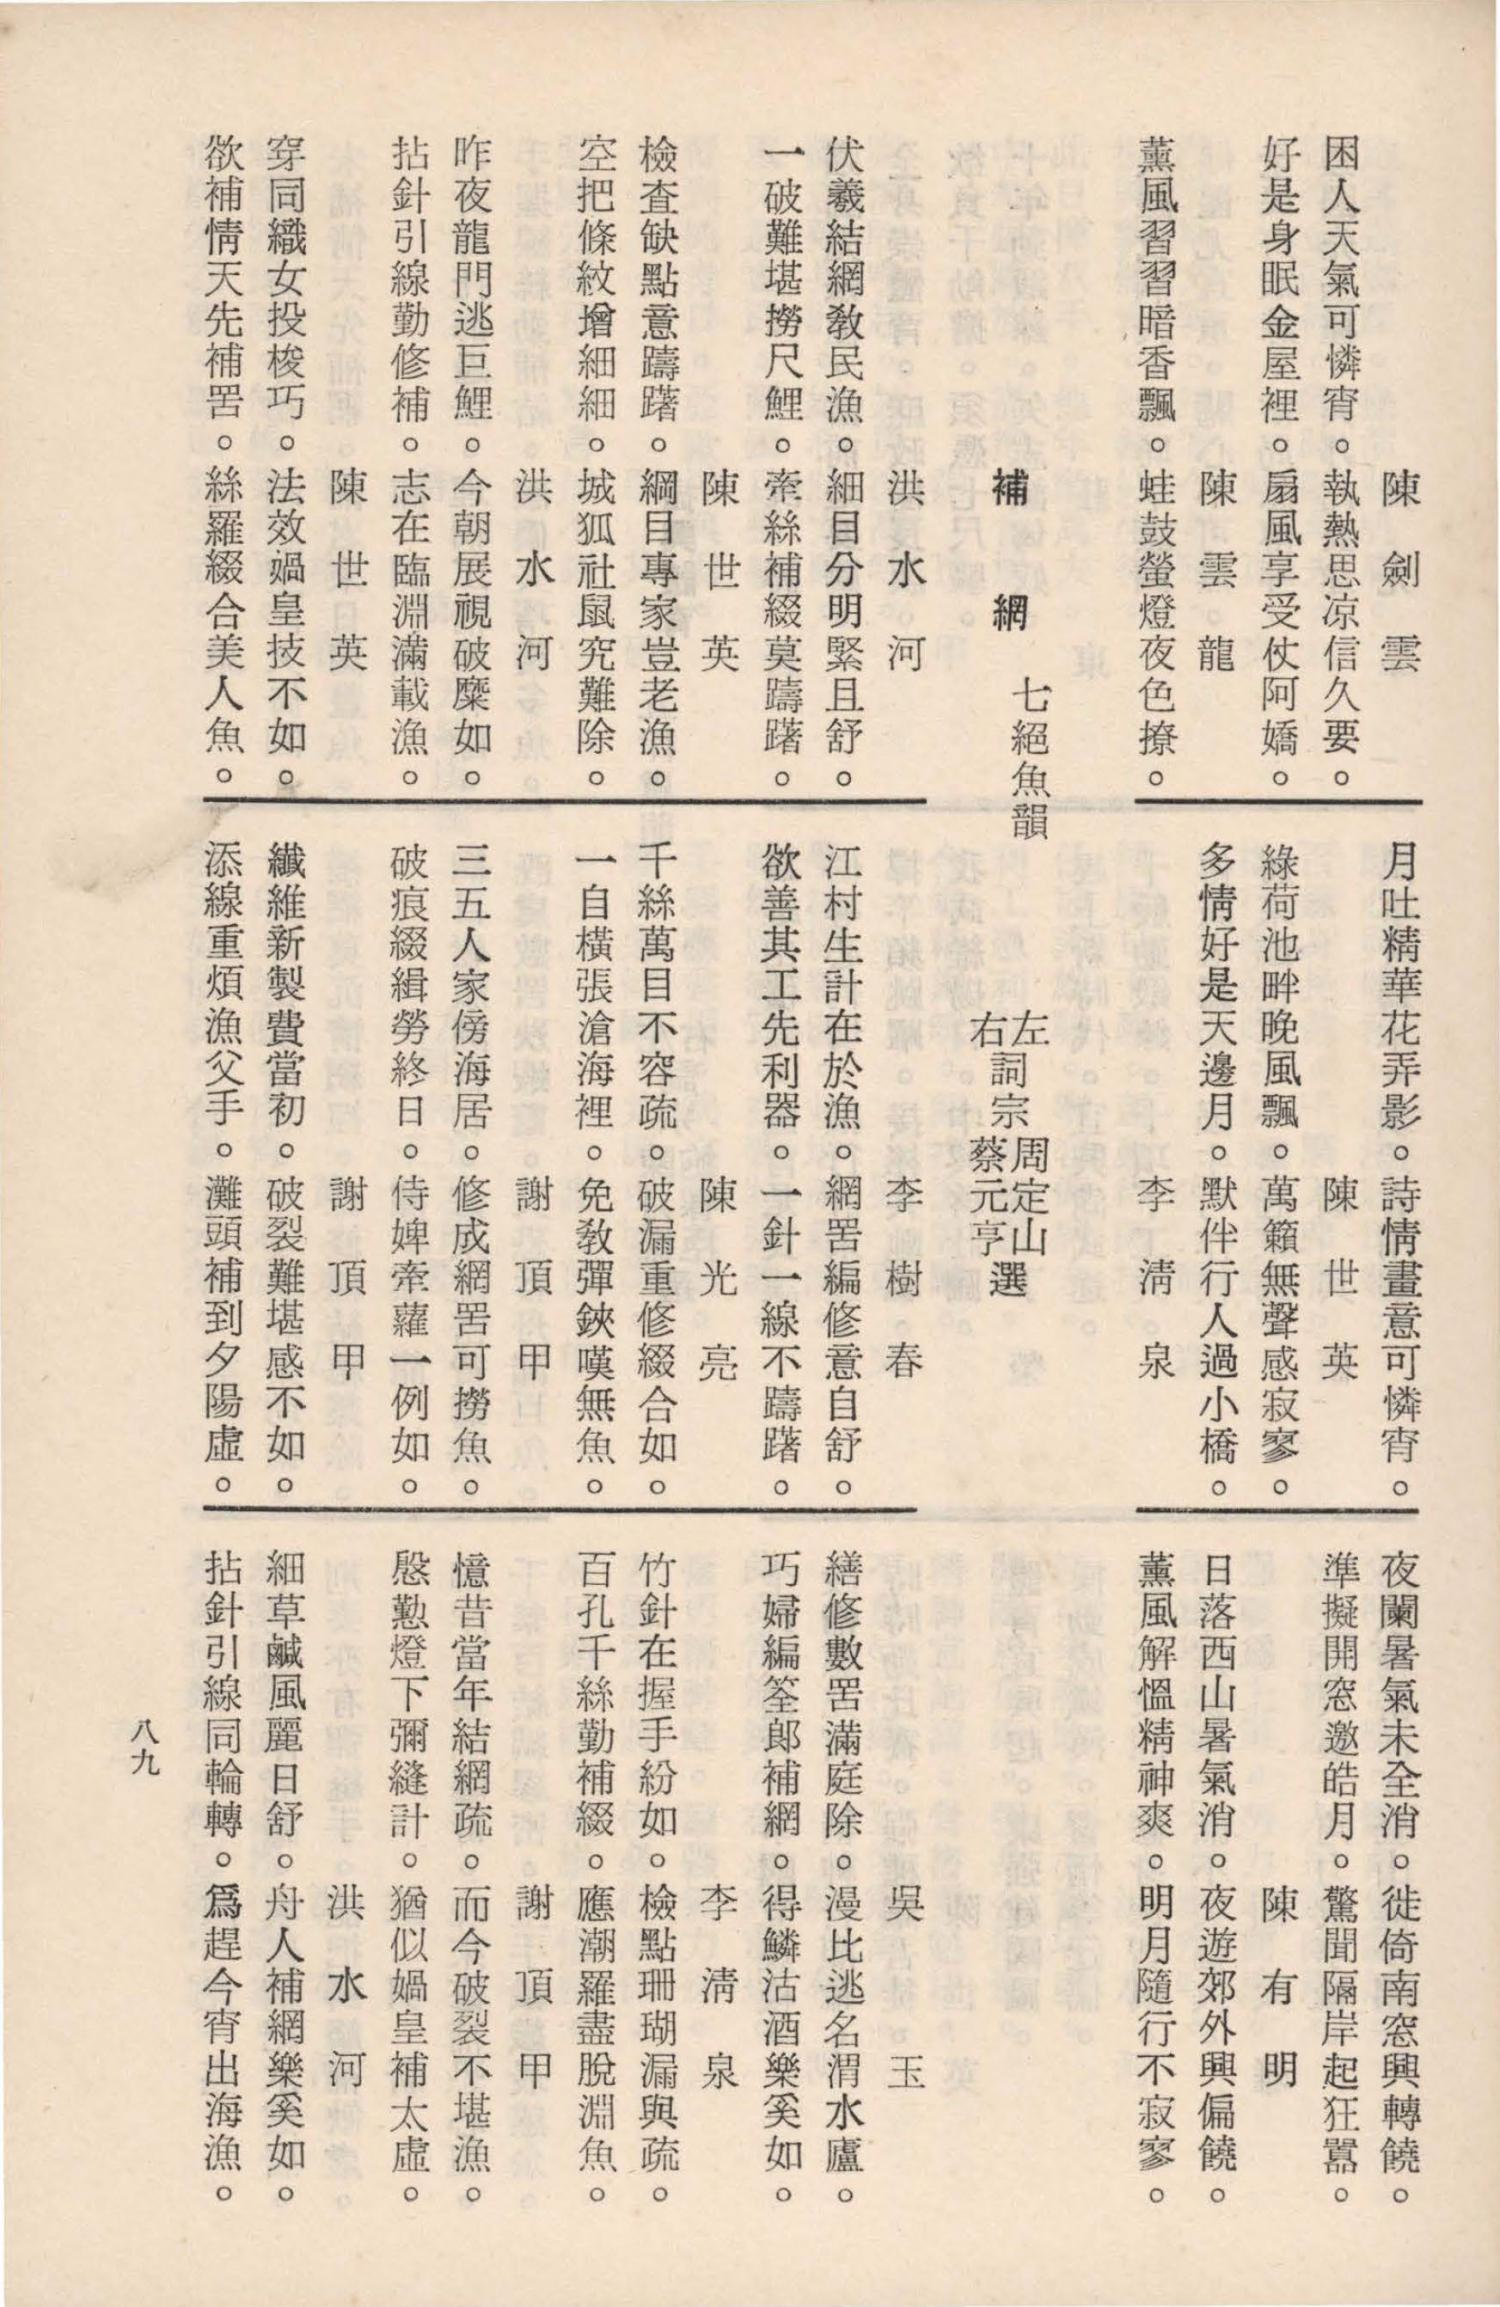 陳劍雲
困人天氣可憐宵。執熱思凉信久要。
好是身眠金屋裡。扇風享受仗阿嬌。
陳雲龍
薰風習習暗香飄。蛙鼓螢燈夜色撩。
月吐精華花弄影。詩情畫意可憐宵。
陳世英
綠荷池畔晚風飄。萬籟無聲感寂寥。
多情好是天邊月。默伴行人過小橋。
李淸泉
夜闌暑氣未全消。徙倚南窓興轉饒。
準擬開窓邀皓月。驚聞隔岸起狂囂。
陳有明
日落西山暑氣消。夜遊郊外興偏饒。
薰風解慍精神爽。明月隨行不寂寥。
補網 七絕魚韻
左詞宗周定山
右詞宗蔡元亨選
洪水河
伏羲結網敎民漁。細目分明緊且舒。
一破難堪撈尺鯉。牽絲補綴莫躊躇。
陳世英
檢查缺點意躊躇。綱目專家豈老漁。
空把條紋增細細。城狐社鼠究難除。
洪水河
咋夜龍門逃巨鯉。今朝展視破糜如。
拈針引線勤修補。志在臨淵滿載漁。
陳世英
穿同織女投梭巧。法效媧皇技不如。
欲補情天先補罟。絲羅綴合美人魚。
李樹春
江村生計在於漁。網罟編修意自舒。
欲善其工先利器。一針一線不躊躇。
陳光亮
千絲萬目不容疏。破漏重修綴合如。
一自橫張滄海裡。免敎彈鋏嘆無魚。
謝頂甲
三五人家傍海居。修成網罟可撈魚。
破痕綴緝勞終日。侍婢牽蘿一例如。
謝頂甲
纖維新製費當初。破裂難堪感不如。
添線重煩漁父手。灘頭補到夕陽虛。
吳玉
繕修數罟滿庭除。漫比逃名渭水廬。
巧婦編筌郎補網。得鱗沽酒樂奚如。
李淸泉
竹針在握手紛如。檢點珊瑚漏與疏。
百孔千絲勤補綴。應潮羅盡脫淵魚。
謝頂甲
憶昔當年結網疏。而今破裂不堪漁。
慇懃燈下彌縫計。猶似媧皇補太虛。
洪水河
細草鹹風麗日舒。舟人補網樂奚如。
拈針引線同輪轉。爲趕今宵出海漁。
八九